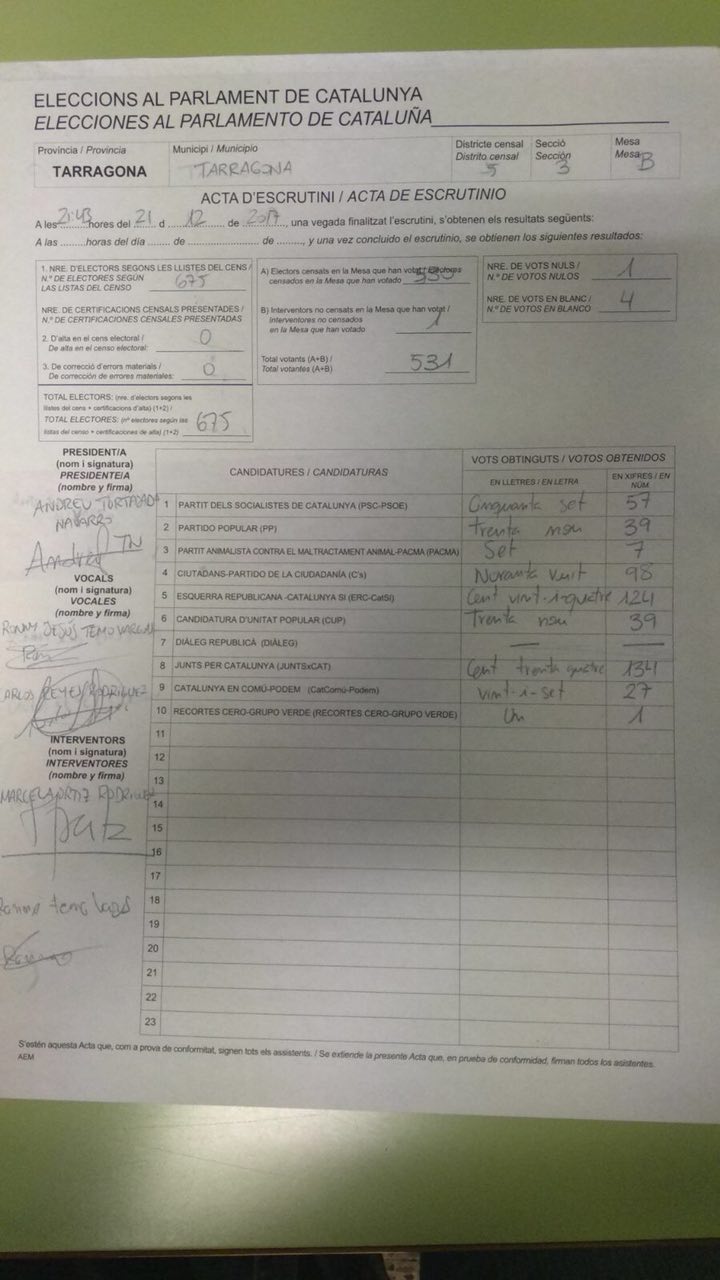 ELECCIONS AL PARLAMENT DE CATALUNYA
ELECCIONES AL PARLAMENTO DE CATALUÑA
Provincia / Provincia
TARRAGONA
Municipi / Municipio
TARRAGONA
Districte censal
Distrito censal
5
Secció
Sección
3
Mesa
Mesa
B
ACTA D'ESCRUTINI / ACTA DE ESCRUTINIO
A les 21:43 hores del 21 d 12 de 2017, una vegada finalitzat l'escrutini, s'obtenen els resultats següents:
A las ......... horas del día ....... de ........................ de ........, y una vez concluido el escrutinio, se obtienen los siguientes resultados:
1. NRE. D'ELECTORS SEGONS LES LLISTES DEL CENS /
N.º DE ELECTORES SEGÚN
LAS LISTAS DEL CENSO
675
NRE. DE CERTIFICACIONS CENSALS PRESENTADES /
N.º DE CERTIFICACIONES CENSALES PRESENTADAS
2. D'alta en el cens electoral /
De alta en el censo electoral:
0
3. De correcció d'errors materials /
De corrección de errores materiales:
0
TOTAL ELECTORS: (nre. d'electors segons les
llistes del cens + certificacions d'alta) (1+2) /
TOTAL ELECTORES: (nº electores según las
listas del censo + certificaciones de alta) (1+2)
675
A) Electors censats en la Mesa que han votat / Electores
censados en la Mesa que han votado
530
B) Interventors no censats en la Mesa que han votat /
Interventores no censados
en la Mesa que han votado
1
Total votants (A+B) /
Total votantes (A+B)
531
NRE. DE VOTS NULS /
N.º DE VOTOS NULOS
1
NRE. DE VOTS EN BLANC /
N.º DE VOTOS EN BLANCO
4
PRESIDENT/A
(nom i signatura)
PRESIDENTE/A
(nombre y firma)
ANDREU TORTAJADA
NAVARRO
Andreu TN
VOCALS
(nom i signatura)
VOCALES
(nombre y firma)
RONNY JESÚS TEMO VARGAS
CARLOS REYES RODRIGUEZ
INTERVENTORS
(nom i signatura)
INTERVENTORES
(nombre y firma)
MARCELA ORTIZ RODRIGUEZ
CANDIDATURES / CANDIDATURAS
VOTS OBTINGUTS / VOTOS OBTENIDOS
EN LLETRES / EN LETRA
EN XIFRES / EN NÚM
1 PARTIT DELS SOCIALISTES DE CATALUNYA (PSC-PSOE) Cinquanta set 57
2 PARTIDO POPULAR (PP) trenta nou 39
3 PARTIT ANIMALISTA CONTRA EL MALTRACTAMENT ANIMAL-PACMA (PACMA) Set 7
4 CIUTADANS-PARTIDO DE LA CIUDADANÍA (C's) Noranta vuit 98
5 ESQUERRA REPUBLICANA -CATALUNYA SI (ERC-CatSí) Cent vint-i-quatre 124
6 CANDIDATURA D'UNITAT POPULAR (CUP) Trenta nou 39
7 DIÀLEG REPUBLICÀ (DIÀLEG) — —
8 JUNTS PER CATALUNYA (JUNTSxCAT) Cent trenta quatre 134
9 CATALUNYA EN COMÚ-PODEM (CatComú-Podem) vint-i-set 27
10 RECORTES CERO-GRUPO VERDE (RECORTES CERO-GRUPO VERDE) Un 1
11
12
13
14
15
16
17
18
19
20
21
22
23
S'estén aquesta Acta que, com a prova de conformitat, signen tots els assistents. / Se extiende la presente Acta que, en prueba de conformidad, firman todos los asistentes.
AEM